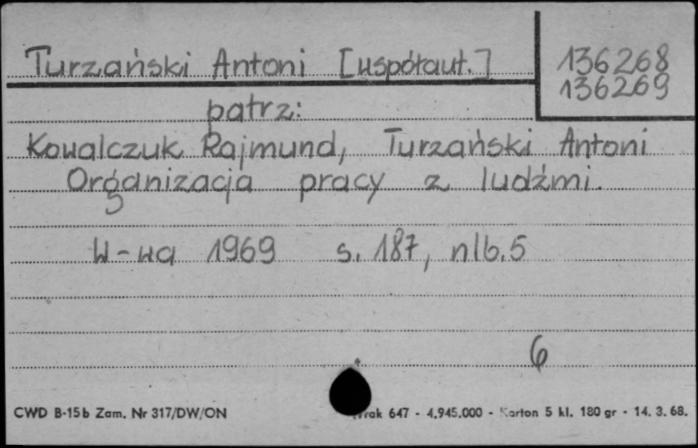 Turzański Antoni [współaut.]
136268
136269
patrz:
Kowalczuk Rajmund, Turzański Antoni
Organizacja pracy z ludźmi.
W-wa 1969 s. 187, nlb. 5
6
CWD B-15b Zam. Nr 317/DW/ON
647 - 4.945.000 - Karton 5 kl. 180 gr - 14. 3. 68.